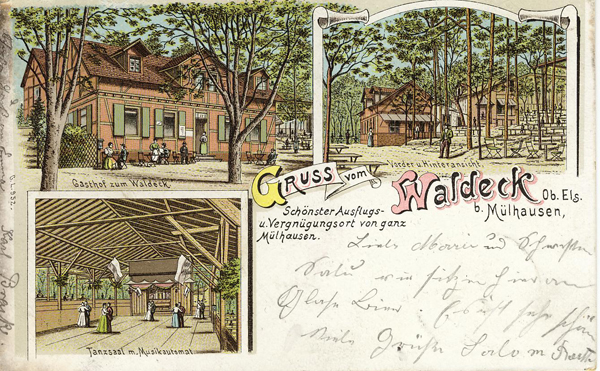 Gasthof zum Waldeck
Vorder u. Hinteransicht.
GRUSS vom
WALDECK Ob. Els.
b. Mülhausen,
Schönster Ausflugs-
u. Vergnügungsort von ganz
Mülhausen.
Tanzsaal m. Musikautomat.
Liebe Marie und
wir sitzen hier am
Glase Bier. Es ist sehr schön
Viele Grüße